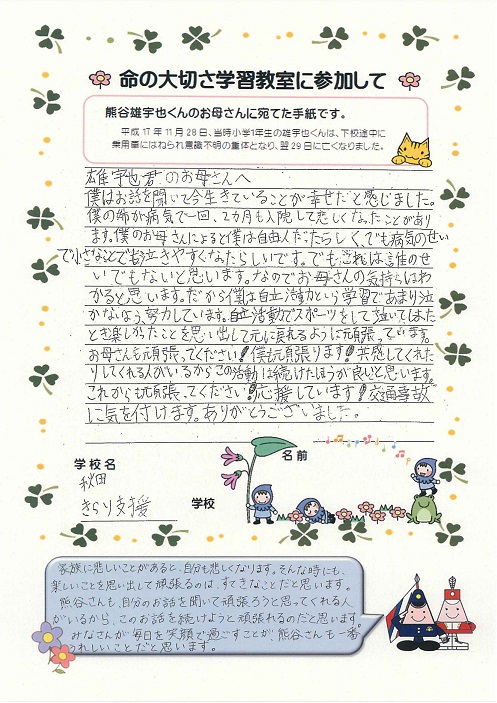 命の大切さ学習教室に参加して
熊谷雄宇也くんのお母さんに宛てた手紙です。
平成17年11月28日、当時小学1年生の雄宇也くんは、下校途中に
乗用車にはねられ意識不明の重体となり、翌29日に亡くなりました。
雄宇也君のお母さんへ
僕はお話を聞いて今生きていることが幸せだと感じました。
僕の命が病気で一回、2カ月も入院して悲しくなったことがあり
ます。僕のお母さんによると僕は自由人だったらしく、でも病気のせい
で小さなことでも泣きやすくなたらしいです。でも恐れは誰のせ
いでもないと思います。なのでお母さんの気持ちはわ
かると思います。だから僕は自立活動という学習であまり泣
かなよう努力しています。自立活動でスポーツをして泣いてしまた
とき楽しかたことを思い出して元に戻れるように頑張っています。
お母さんも頑張ってください!僕も頑張ります!共感してくれた
りしてくれる人がいるからこの活動は続けたほうが良いと思います。
これからも頑張ってください!応援しています!交通事故
に気を付けます。ありがとうございました。
学校名
秋田
きらり支援
学校
名前
家族に悲しいことがあると、自分も悲しくなります。そんな時にも、
楽しいことを思い出して頑張るのは、すてきなことだと思います。
熊谷さんも、自分のお話を聞いて頑張ろうと思ってくれる人
がいるから、このお話を続けようと頑張れるのだと思います。
みなさんが毎日を笑顔で過ごすことが、熊谷さんも一番
うれしいことだと思います。